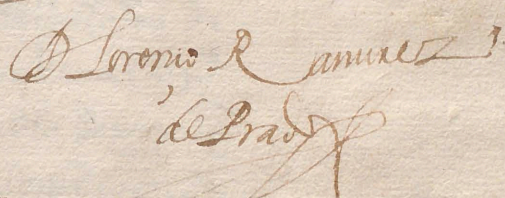 D Lorenço Ramirez
de Prado